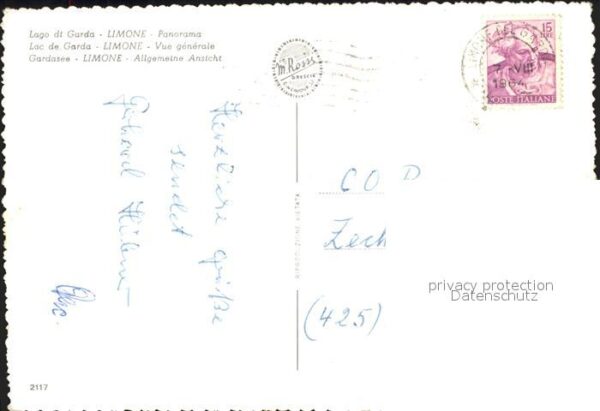 Lago di Garda - LIMONE - Panorama
Lac de Garda - LIMONE - Vue générale
Gardasee - LIMONE - Allgemeine Ansicht
Rossi
BRESCIA
15
LIRE
7-VIII
1964
POSTE ITALIANE
Herzliche Grüße
sendet
Gerhard
RIPRODUZIONE VIETATA
COP
Zech
(425)
privacy protection
Datenschutz
2117